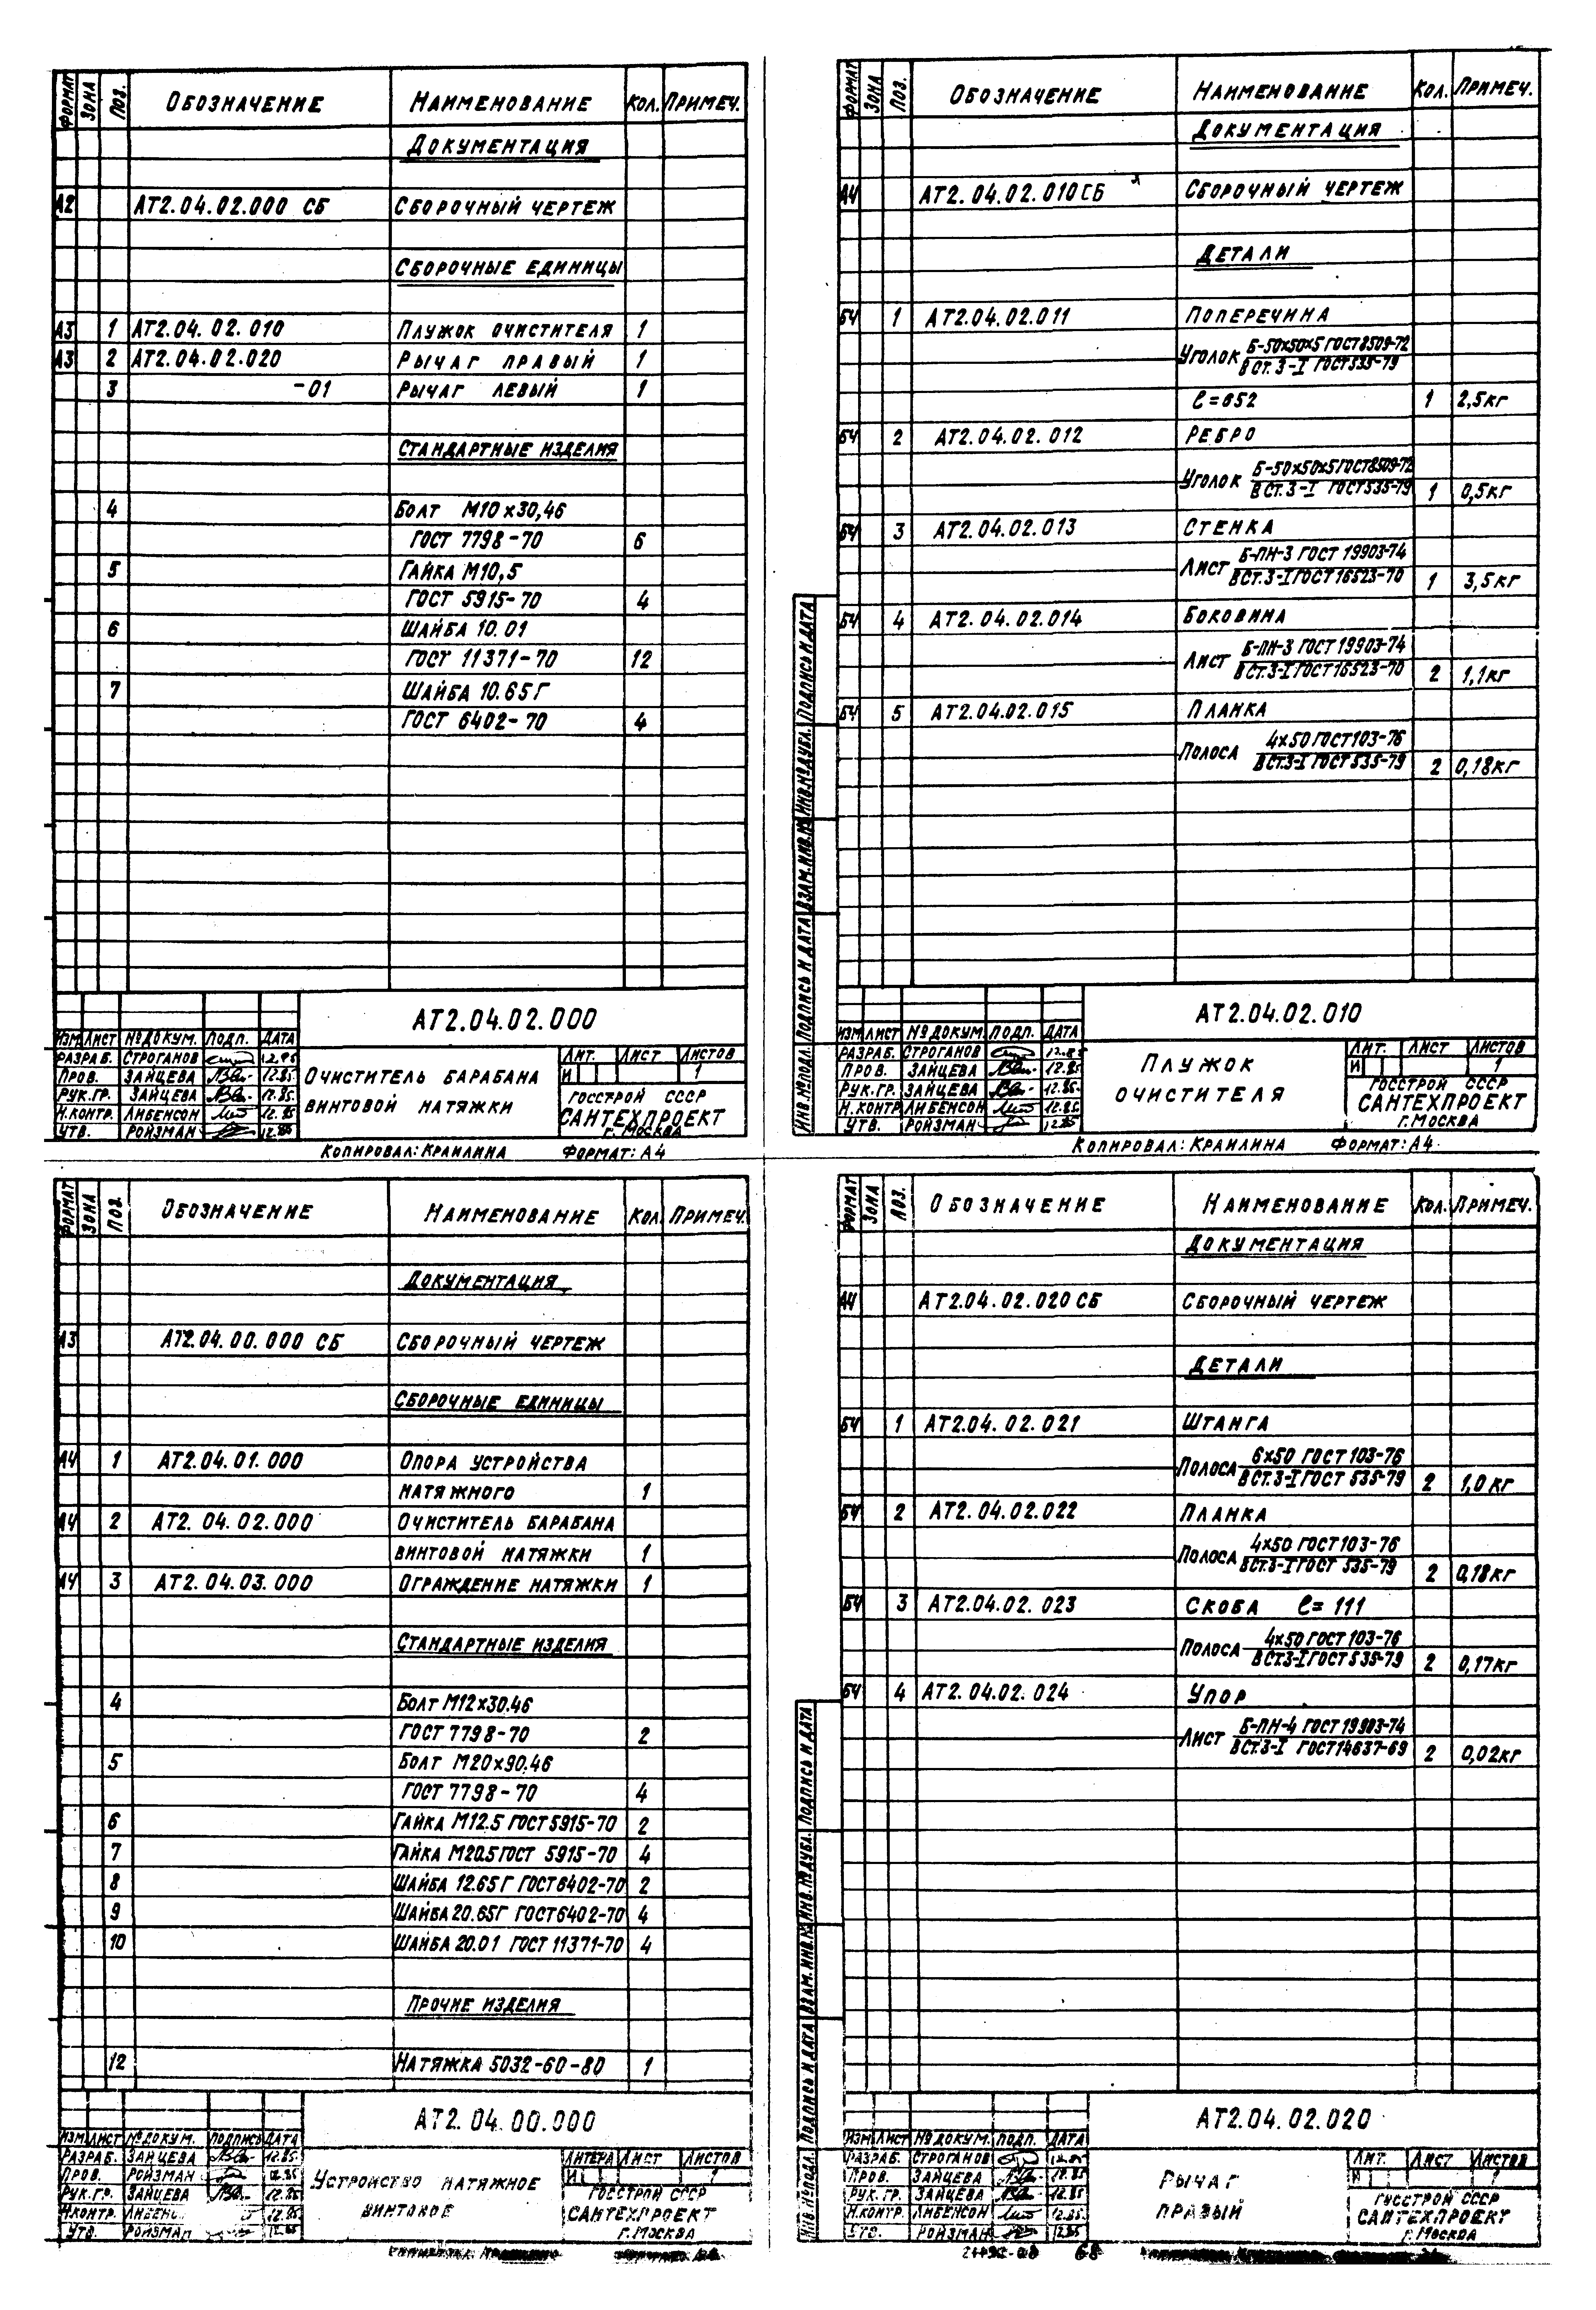 ФОРМАТ ЗОНА ПОЗ. ОБОЗНАЧЕНИЕ НАИМЕНОВАНИЕ КОЛ. ПРИМЕЧ.
ДОКУМЕНТАЦИЯ
А2 АТ2.04.02.000 СБ СБОРОЧНЫЙ ЧЕРТЕЖ
СБОРОЧНЫЕ ЕДИНИЦЫ
А3 1 АТ2.04.02.010 ПЛУЖОК ОЧИСТИТЕЛЯ 1
А3 2 АТ2.04.02.020 РЫЧАГ ПРАВЫЙ 1
3 -01 РЫЧАГ ЛЕВЫЙ 1
СТАНДАРТНЫЕ ИЗДЕЛИЯ
4 БОЛТ М10×30,46
ГОСТ 7798-70 6
5 ГАЙКА М10,5
ГОСТ 5915-70 4
6 ШАЙБА 10.01
ГОСТ 11371-70 12
7 ШАЙБА 10.65Г
ГОСТ 6402-70 4
АТ2.04.02.000
ИЗМ ЛИСТ №ДОКУМ. ПОДП. ДАТА
РАЗРАБ. СТРОГАНОВ 12.85
ПРОВ. ЗАЙЦЕВА 12.85
РУК.ГР. ЗАЙЦЕВА 12.85.
Н.КОНТР. ЛИБЕНСОН 12.85
УТВ. РОЙЗМАН 12.85
ОЧИСТИТЕЛЬ БАРАБАНА
ВИНТОВОЙ НАТЯЖКИ
ЛИТ. ЛИСТ ЛИСТОВ
И 1
ГОССТРОЙ СССР
САНТЕХПРОЕКТ
Г. МОСКВА
КОПИРОВАЛ: КРАИЛИНА ФОРМАТ: А4
ФОРМАТ ЗОНА ПОЗ. ОБОЗНАЧЕНИЕ НАИМЕНОВАНИЕ КОЛ. ПРИМЕЧ.
ДОКУМЕНТАЦИЯ
А4 АТ2.04.02.010СБ СБОРОЧНЫЙ ЧЕРТЕЖ
ДЕТАЛИ
БЧ 1 АТ2.04.02.011 ПОПЕРЕЧИНА
УГОЛОК Б-50×50×5 ГОСТ8509-72
ВСТ.3-I ГОСТ535-79
ℓ=652 1 2,5кг
БЧ 2 АТ2.04.02.012 РЕБРО
УГОЛОК Б-50×50×5 ГОСТ8509-72
ВСТ.3-I ГОСТ535-79 1 0,5кг
БЧ 3 АТ2.04.02.013 СТЕНКА
ЛИСТ Б-ПН-3 ГОСТ 19903-74
ВСТ.3-I ГОСТ16523-70 1 3,5кг
БЧ 4 АТ2.04.02.014 БОКОВИНА
ЛИСТ Б-ПН-3 ГОСТ 19903-74
ВСТ.3-I ГОСТ16523-70 2 1,1кг
БЧ 5 АТ2.04.02.015 ПЛАНКА
ПОЛОСА 4×50 ГОСТ103-76
ВСТ.3-I ГОСТ 535-79 2 0,18кг
ИНВ.№ПОДЛ. ПОДПИСЬ И ДАТА ВЗАМ.ИНВ.№ ИНВ.№ДУБЛ. ПОДПИСЬ И ДАТА
АТ2.04.02.010
ИЗМ ЛИСТ №ДОКУМ. ПОДП. ДАТА
РАЗРАБ. СТРОГАНОВ 12.85
ПРОВ. ЗАЙЦЕВА 12.85
РУК.ГР. ЗАЙЦЕВА 12.85.
Н.КОНТР ЛИБЕНСОН 12.85.
УТВ. РОЙЗМАН 12.85
ПЛУЖОК
ОЧИСТИТЕЛЯ
ЛИТ. ЛИСТ ЛИСТОВ
И 1
ГОССТРОЙ СССР
САНТЕХПРОЕКТ
Г. МОСКВА
КОПИРОВАЛ: КРАИЛИНА ФОРМАТ: А4
ФОРМАТ ЗОНА ПОЗ. ОБОЗНАЧЕНИЕ НАИМЕНОВАНИЕ КОЛ. ПРИМЕЧ.
ДОКУМЕНТАЦИЯ
А3 АТ2.04.00.000 СБ СБОРОЧНЫЙ ЧЕРТЕЖ
СБОРОЧНЫЕ ЕДИНИЦЫ
А4 1 АТ2.04.01.000 ОПОРА УСТРОЙСТВА
НАТЯЖНОГО 1
А4 2 АТ2.04.02.000 ОЧИСТИТЕЛЬ БАРАБАНА
ВИНТОВОЙ НАТЯЖКИ 1
А4 3 АТ2.04.03.000 ОГРАЖДЕНИЕ НАТЯЖКИ 1
СТАНДАРТНЫЕ ИЗДЕЛИЯ
4 БОЛТ М12×30.46
ГОСТ 7798-70 2
5 БОЛТ М20×90.46
ГОСТ 7798-70 4
6 ГАЙКА М12.5 ГОСТ5915-70 2
7 ГАЙКА М20.5 ГОСТ 5915-70 4
8 ШАЙБА 12.65Г ГОСТ6402-70 2
9 ШАЙБА 20.65Г ГОСТ6402-70 4
10 ШАЙБА 20.01 ГОСТ 11371-70 4
ПРОЧИЕ ИЗДЕЛИЯ
12 НАТЯЖКА 5032-60-80 1
АТ2.04.00.000
ИЗМ ЛИСТ №ДОКУМ. ПОДПИСЬ ДАТА
РАЗРАБ. ЗАЙЦЕВА 12.85.
ПРОВ. РОЙЗМАН 12.85
РУК.ГР. ЗАЙЦЕВА 12.85
Н.КОНТР. 12.85
УТВ. РОЙЗМАН
УСТРОЙСТВО НАТЯЖНОЕ
ВИНТОВОЕ
ЛИТЕРА ЛИСТ ЛИСТОВ
И 1
ГОССТРОЙ СССР
САНТЕХПРОЕКТ
Г. МОСКВА
ФОРМАТ ЗОНА ПОЗ. ОБОЗНАЧЕНИЕ НАИМЕНОВАНИЕ КОЛ. ПРИМЕЧ.
ДОКУМЕНТАЦИЯ
А4 АТ2.04.02.020 СБ СБОРОЧНЫЙ ЧЕРТЕЖ
ДЕТАЛИ
БЧ 1 АТ2.04.02.021 ШТАНГА
ПОЛОСА 6×50 ГОСТ 103-76
ВСТ.3-I ГОСТ 535-79 2 1,0 кг
БЧ 2 АТ2.04.02.022 ПЛАНКА
ПОЛОСА 4×50 ГОСТ 103-76
ВСТ.3-I ГОСТ 535-79 2 0,18кг
БЧ 3 АТ2.04.02.023 СКОБА ℓ=111
ПОЛОСА 4×50 ГОСТ 103-76
ВСТ.3-I ГОСТ 535-79 2 0,17кг
БЧ 4 АТ2.04.02.024 УПОР
ЛИСТ Б-ПН-4 ГОСТ 19903-74
ВСТ.3-I ГОСТ14637-69 2 0,02кг
ИНВ.№ПОДЛ. ПОДПИСЬ И ДАТА ВЗАМ.ИНВ.№ ИНВ.№ДУБЛ. ПОДПИСЬ И ДАТА
АТ2.04.02.020
ИЗМ ЛИСТ №ДОКУМ. ПОДП. ДАТА
РАЗРАБ. СТРОГАНОВ 12.85
ПРОВ. ЗАЙЦЕВА 12.85
РУК.ГР. ЗАЙЦЕВА 12.85
Н.КОНТР. ЛИБЕНСОН 12.85.
УТВ. РОЙЗМАН 12.85
РЫЧАГ
ПРАВЫЙ
ЛИТ. ЛИСТ ЛИСТОВ
И 1
ГОССТРОЙ СССР
САНТЕХПРОЕКТ
Г. МОСКВА
68